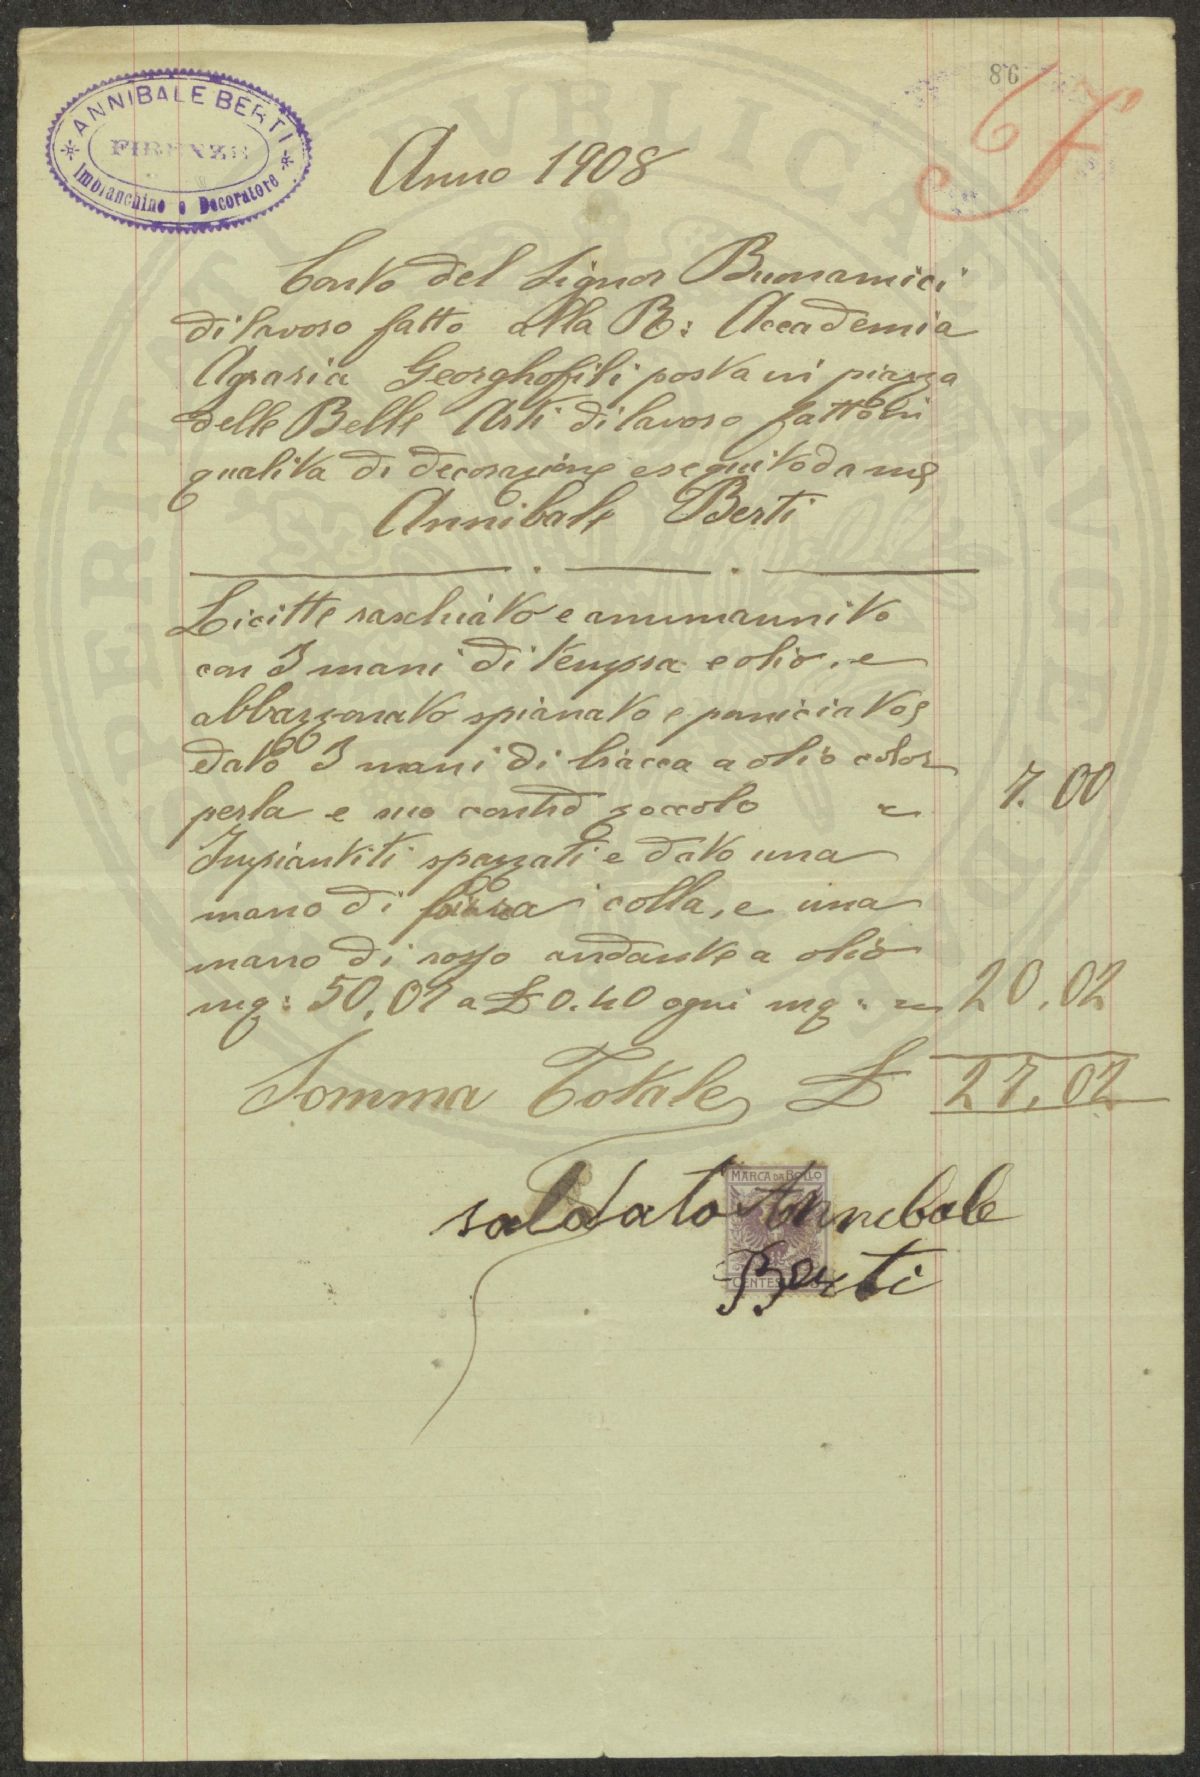 ANNIBALE BERTI
FIRENZE
Imbianchino e Decoratore
86
Anno 1908
Conto del Signor Buonamici
di lavoro fatto alla R: Accademia
Agraria Georghofili posta in piazza
delle Belle Arti di lavoro fatto in
qualita di decorazione eseguito da me
Annibale Berti
raschiato e
con 3 mani di tempra e olio, e
spianato e
dato 3 mani di biacca a olio color
perla e suo zoccolo 7.00
Impiantiti spazzati e dato una
mano di colla, e una
mano di rosso andante a olio
mq: 50,02 a £ 0.40 ogni mq: 20,02
Somma Totale £ 27,02
MARCA DA BOLLO
saldato Annibale
Berti